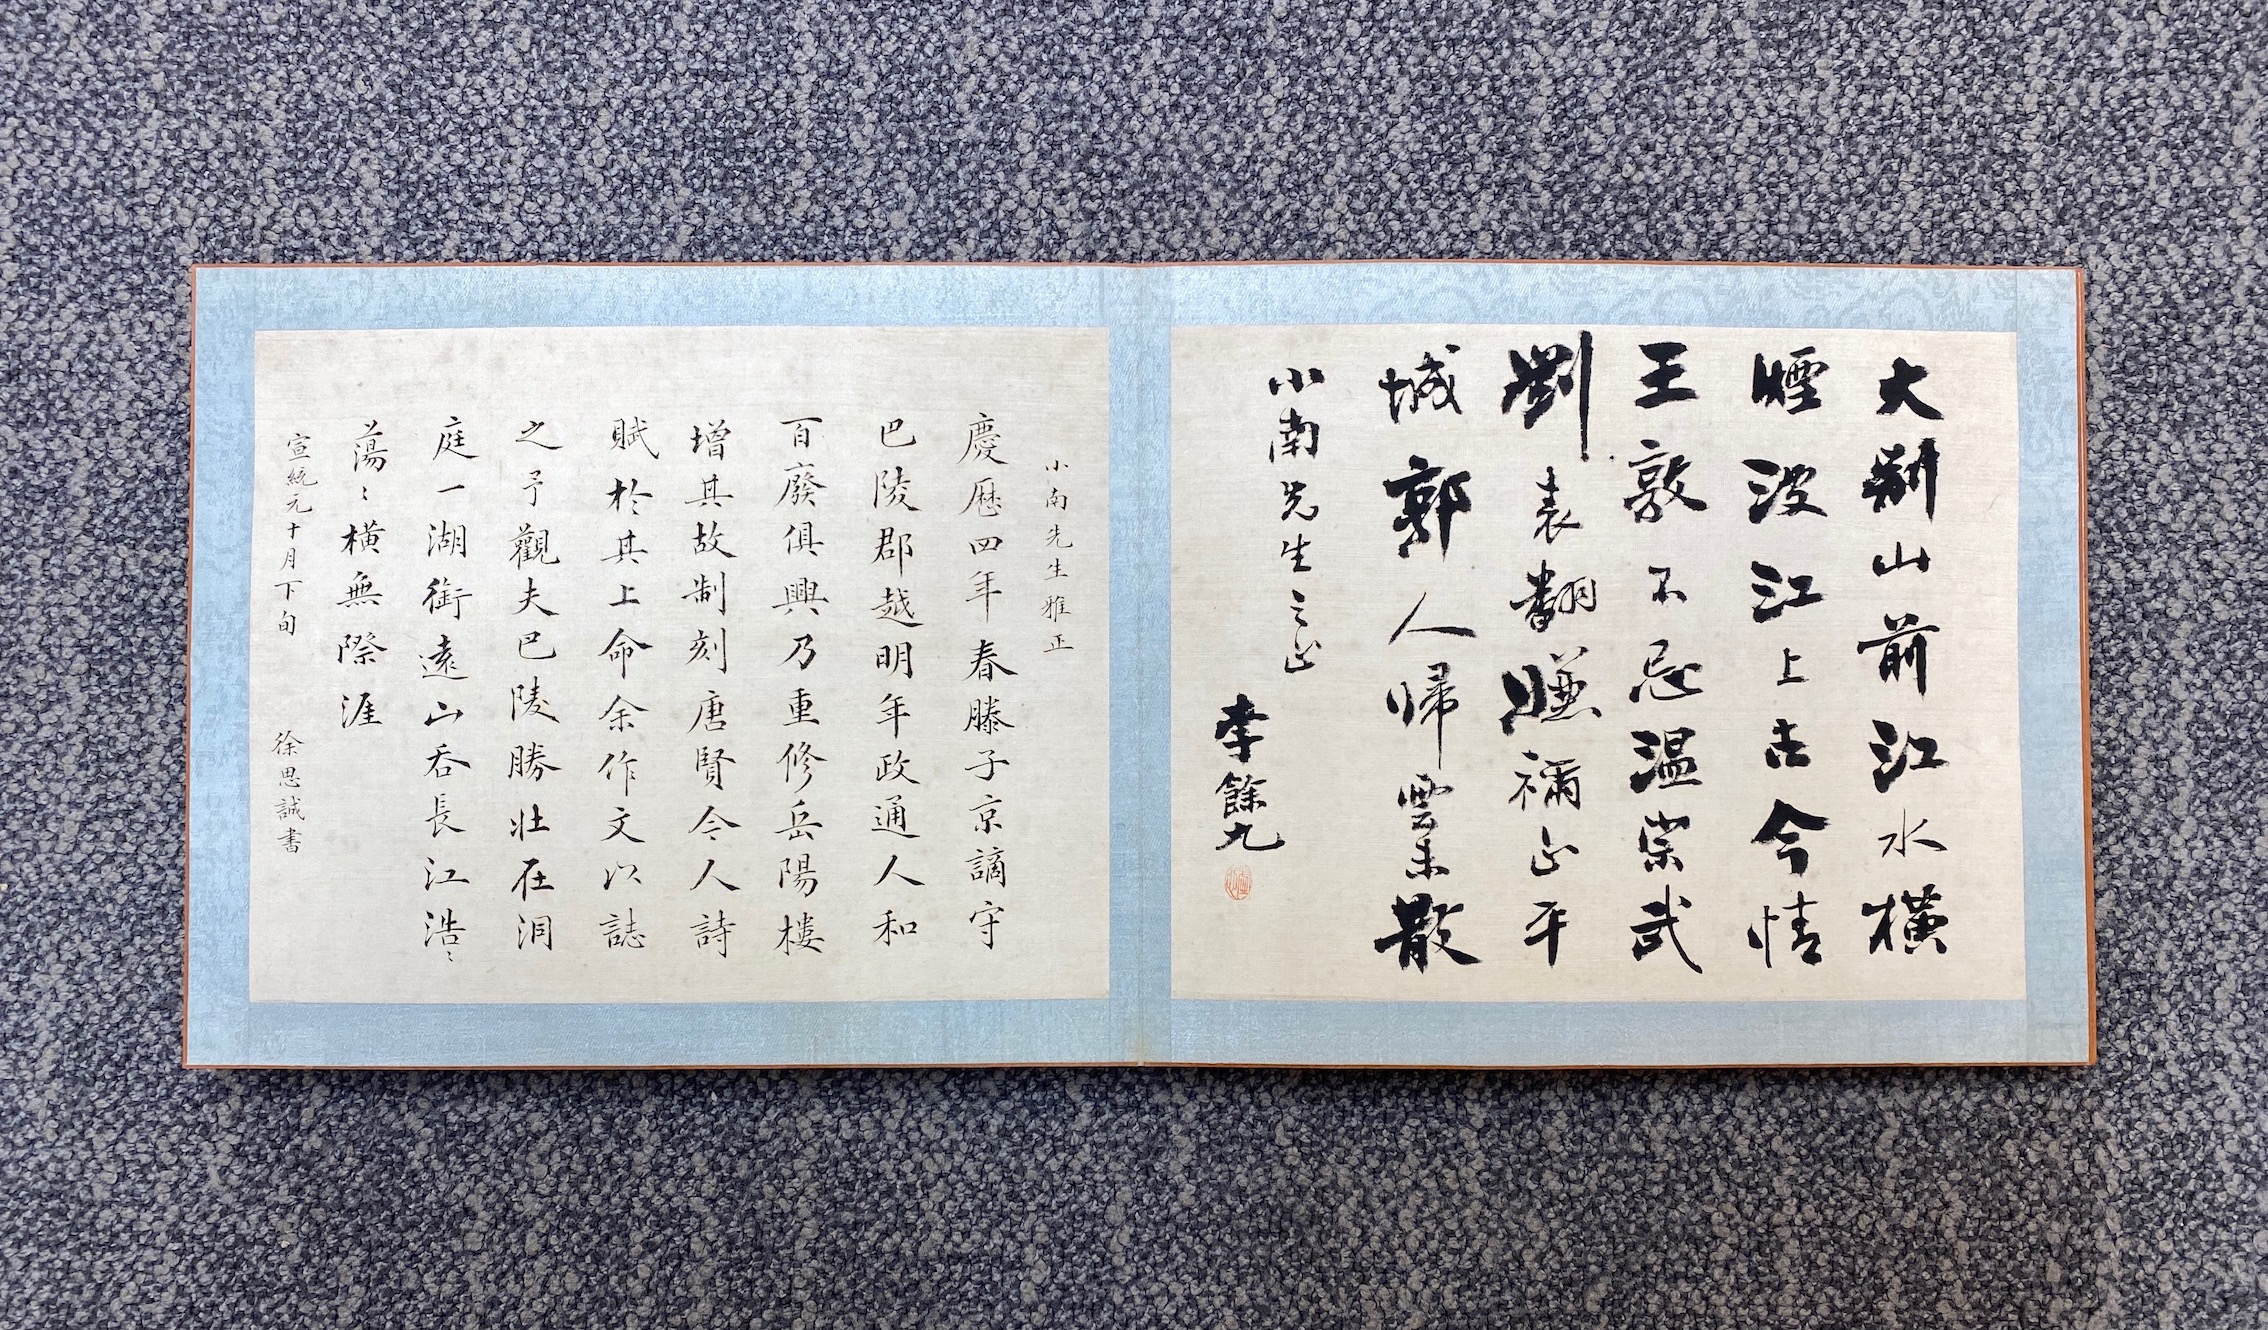 大別山前江水橫
煙波江上古今情
王敦不忌溫崇武
劉表翻嫌禰正平
城郭人歸雲未散
小南先生之正
李餘九
小南先生雅正
慶歷四年春滕子京謫守
巴陵郡越明年政通人和
百廢俱興乃重修岳陽樓
增其故制刻唐賢今人詩
賦於其上命余作文以誌
之予觀夫巴陵勝壯在洞
庭一湖銜遠山吞長江浩〻
蕩〻橫無際涯
宣統元十月下旬
徐思誠書